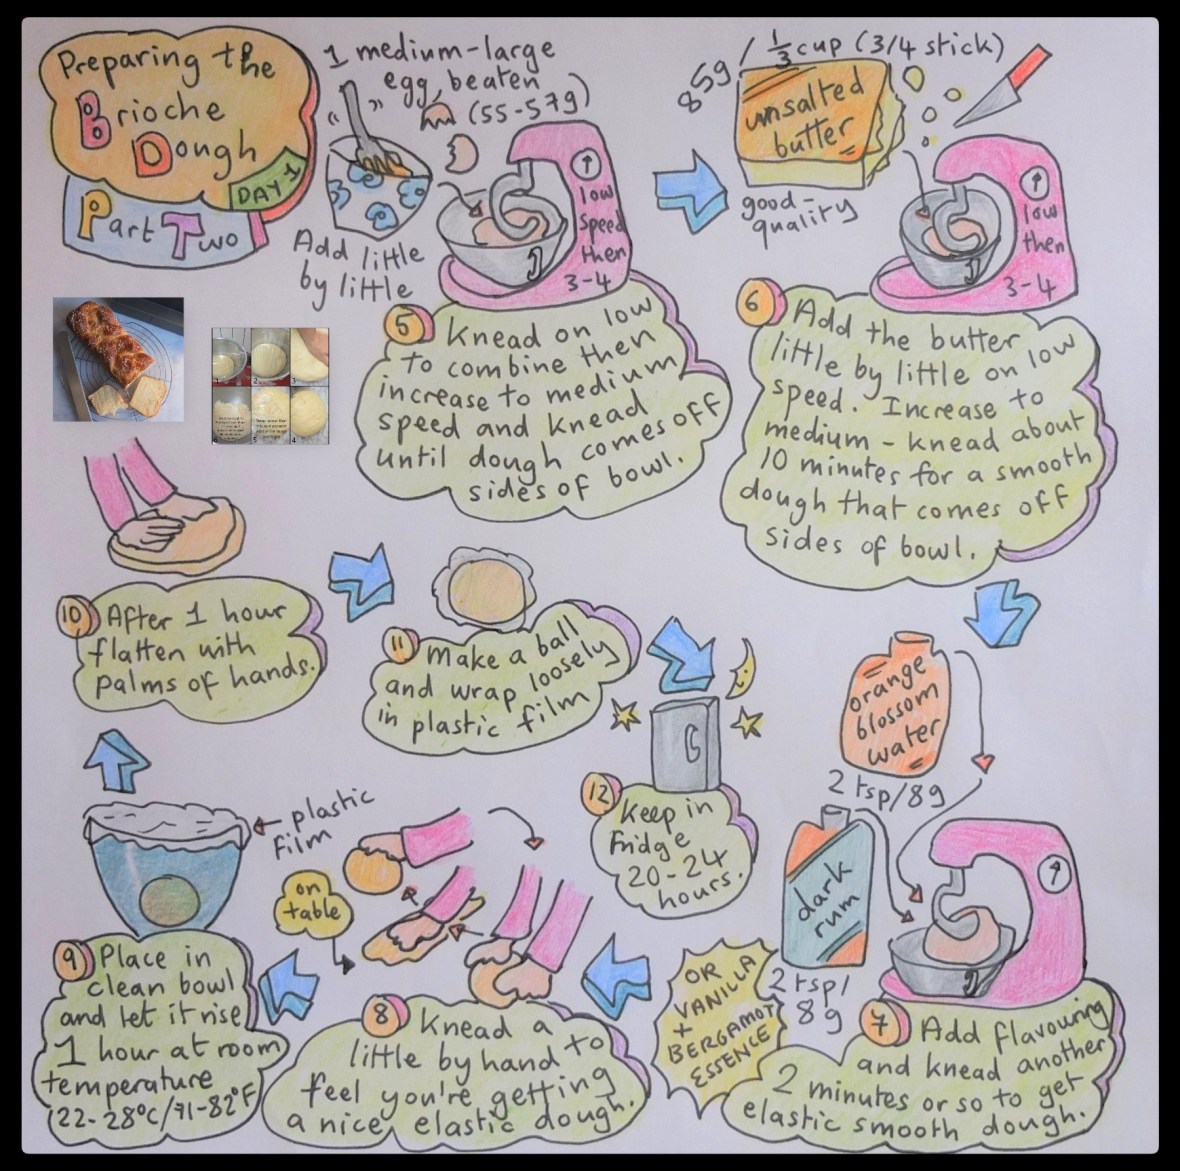 Preparing the
Brioche
Dough
DAY 1
Part Two
1 medium-large
egg, beaten
(55-57g)
Add little
by little
↑
low
Speed
then
3-4
5 Knead on low
to combine then
increase to medium
speed and knead
until dough comes off
sides of bowl.
85g / 1/3 cup (3/4 stick)
unsalted
butter
good-
quality
↑
low
then
3-4
6 Add the butter
little by little on low
speed. Increase to
medium - knead about
10 minutes for a smooth
dough that comes off
sides of bowl.
orange
blossom
water
2 tsp/8g
dark
rum
2 tsp/
8g
OR
VANILLA
+
BERGAMOT
ESSENCE
↑
7 Add flavouring
and knead another
2 minutes or so to get
elastic smooth dough.
on
table
8 Knead a
little by hand to
feel you're getting
a nice, elastic dough.
plastic
film
9 Place in
clean bowl
and let it rise
1 hour at room
temperature
(22-28°C/71-82°F)
10 After 1 hour
flatten with
palms of hands.
11 Make a ball
and wrap loosely
in plastic film
12 Keep in
fridge
20-24
hours.
1
2
3
5
4